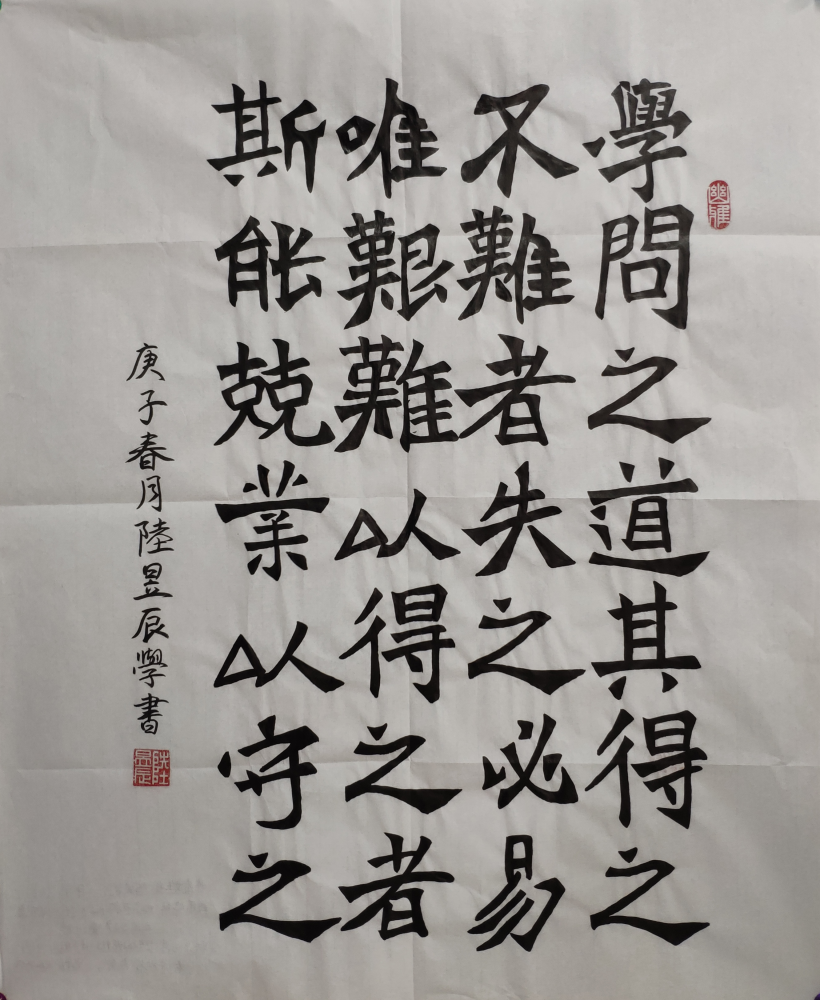 學問之道其得之
不難者失之必易
唯艱難以得之者
斯能兢業以守之
庚子春月陸昱辰學書
幽雅
陸昱辰